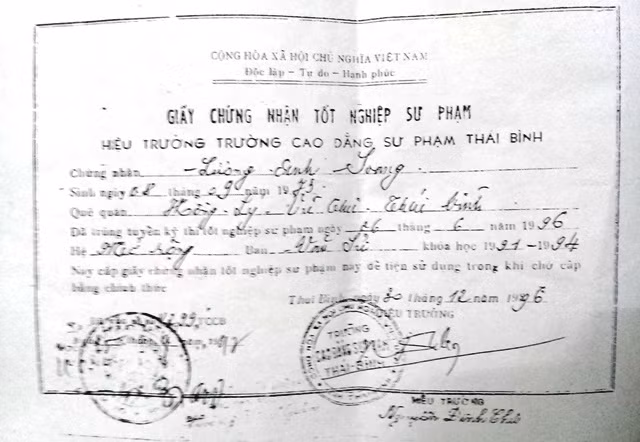 CỘNG HÒA XÃ HỘI CHỦ NGHĨA VIỆT NAM
Độc lập - Tự do - Hạnh phúc
GIẤY CHỨNG NHẬN TỐT NGHIỆP SƯ PHẠM
HIỆU TRƯỞNG TRƯỜNG CAO ĐẲNG SƯ PHẠM THÁI BÌNH
Chứng nhận Lương
Sinh ngày 08 tháng 09 năm 1973
Quê quán Hồng Lý - Vũ Thư - Thái Bình
Đã trúng tuyển kỳ thi tốt nghiệp sư phạm ngày 26 tháng 6 năm 1996
Hệ Ban Văn Sử khóa học 1991 - 1994
Nay cấp giấy chứng nhận tốt nghiệp sư phạm này để tiện sử dụng trong khi chờ cấp
bằng chính thức
Thái Bình, ngày 30 tháng 12 năm 1996
HIỆU TRƯỞNG
TRƯỜNG
CAO ĐẲNG SƯ PHẠM
THÁI-BÌNH
HIỆU TRƯỞNG
Nguyễn Đình